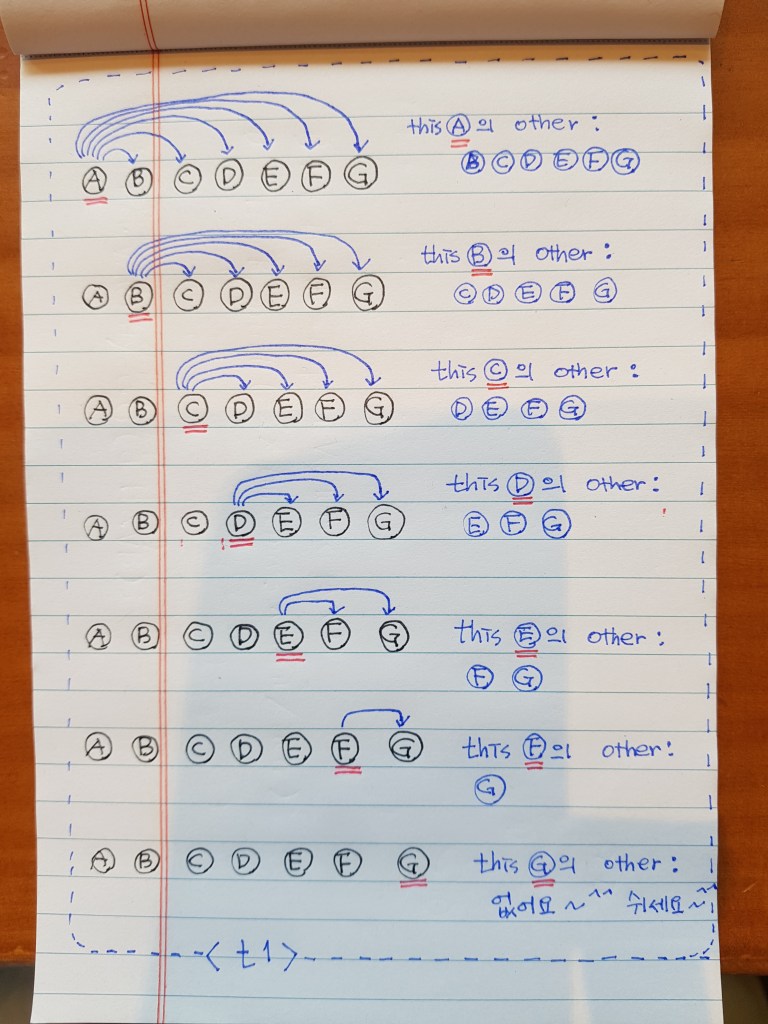 this A의 other:
A B C D E F G
B C D E F G
this B의 other:
A B C D E F G
C D E F G
this C의 other:
A B C D E F G
D E F G
this D의 other:
A B C D E F G
E F G
this E의 other:
A B C D E F G
F G
this F의 other:
A B C D E F G
G
this G의 other:
A B C D E F G
없어요~^^ 쉬세요~^^
<t1>